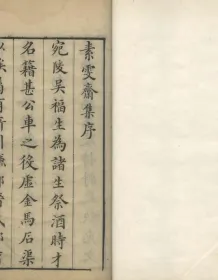 素雯齋集序
宛陵吳福生為諸生祭酒時才
名籍甚公車之後虛金馬石渠